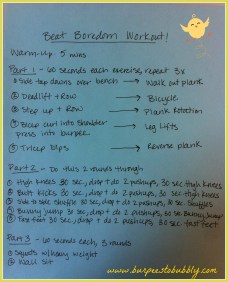 Beat Boredom Workout!
Warm-Up: 5 mins
Part 1 - 60 seconds each exercise, repeat 3x
① Side tap downs over bench → Walk out plank
② Deadlift + Row → Bicycle
③ Step up + Row → Plank Rotation
④ Bicep curl into shoulder press into burpee → Leg Lifts
⑤ Tricep Dips → Reverse plank
Part 2 - Do this 2 rounds through
① High Knees 30 sec, drop + do 2 pushups, 30 sec High Knees
② Butt Kicks 30 sec, drop + do 2 pushups, 30 sec
③ Side to side shuffle 30 sec, drop + do 2 pushups, 30 sec. Shuffles
④ Bunny jump 30 sec, drop + do 2 pushups, 30 sec Bunny jump
⑤ fast feet 30 sec, drop + do 2 pushups, 30 sec fast feet
Part 3 - 60 seconds each, 3 rounds
① Squats w/heavy weight
② Wall sit
www.burpeestobubbly.com